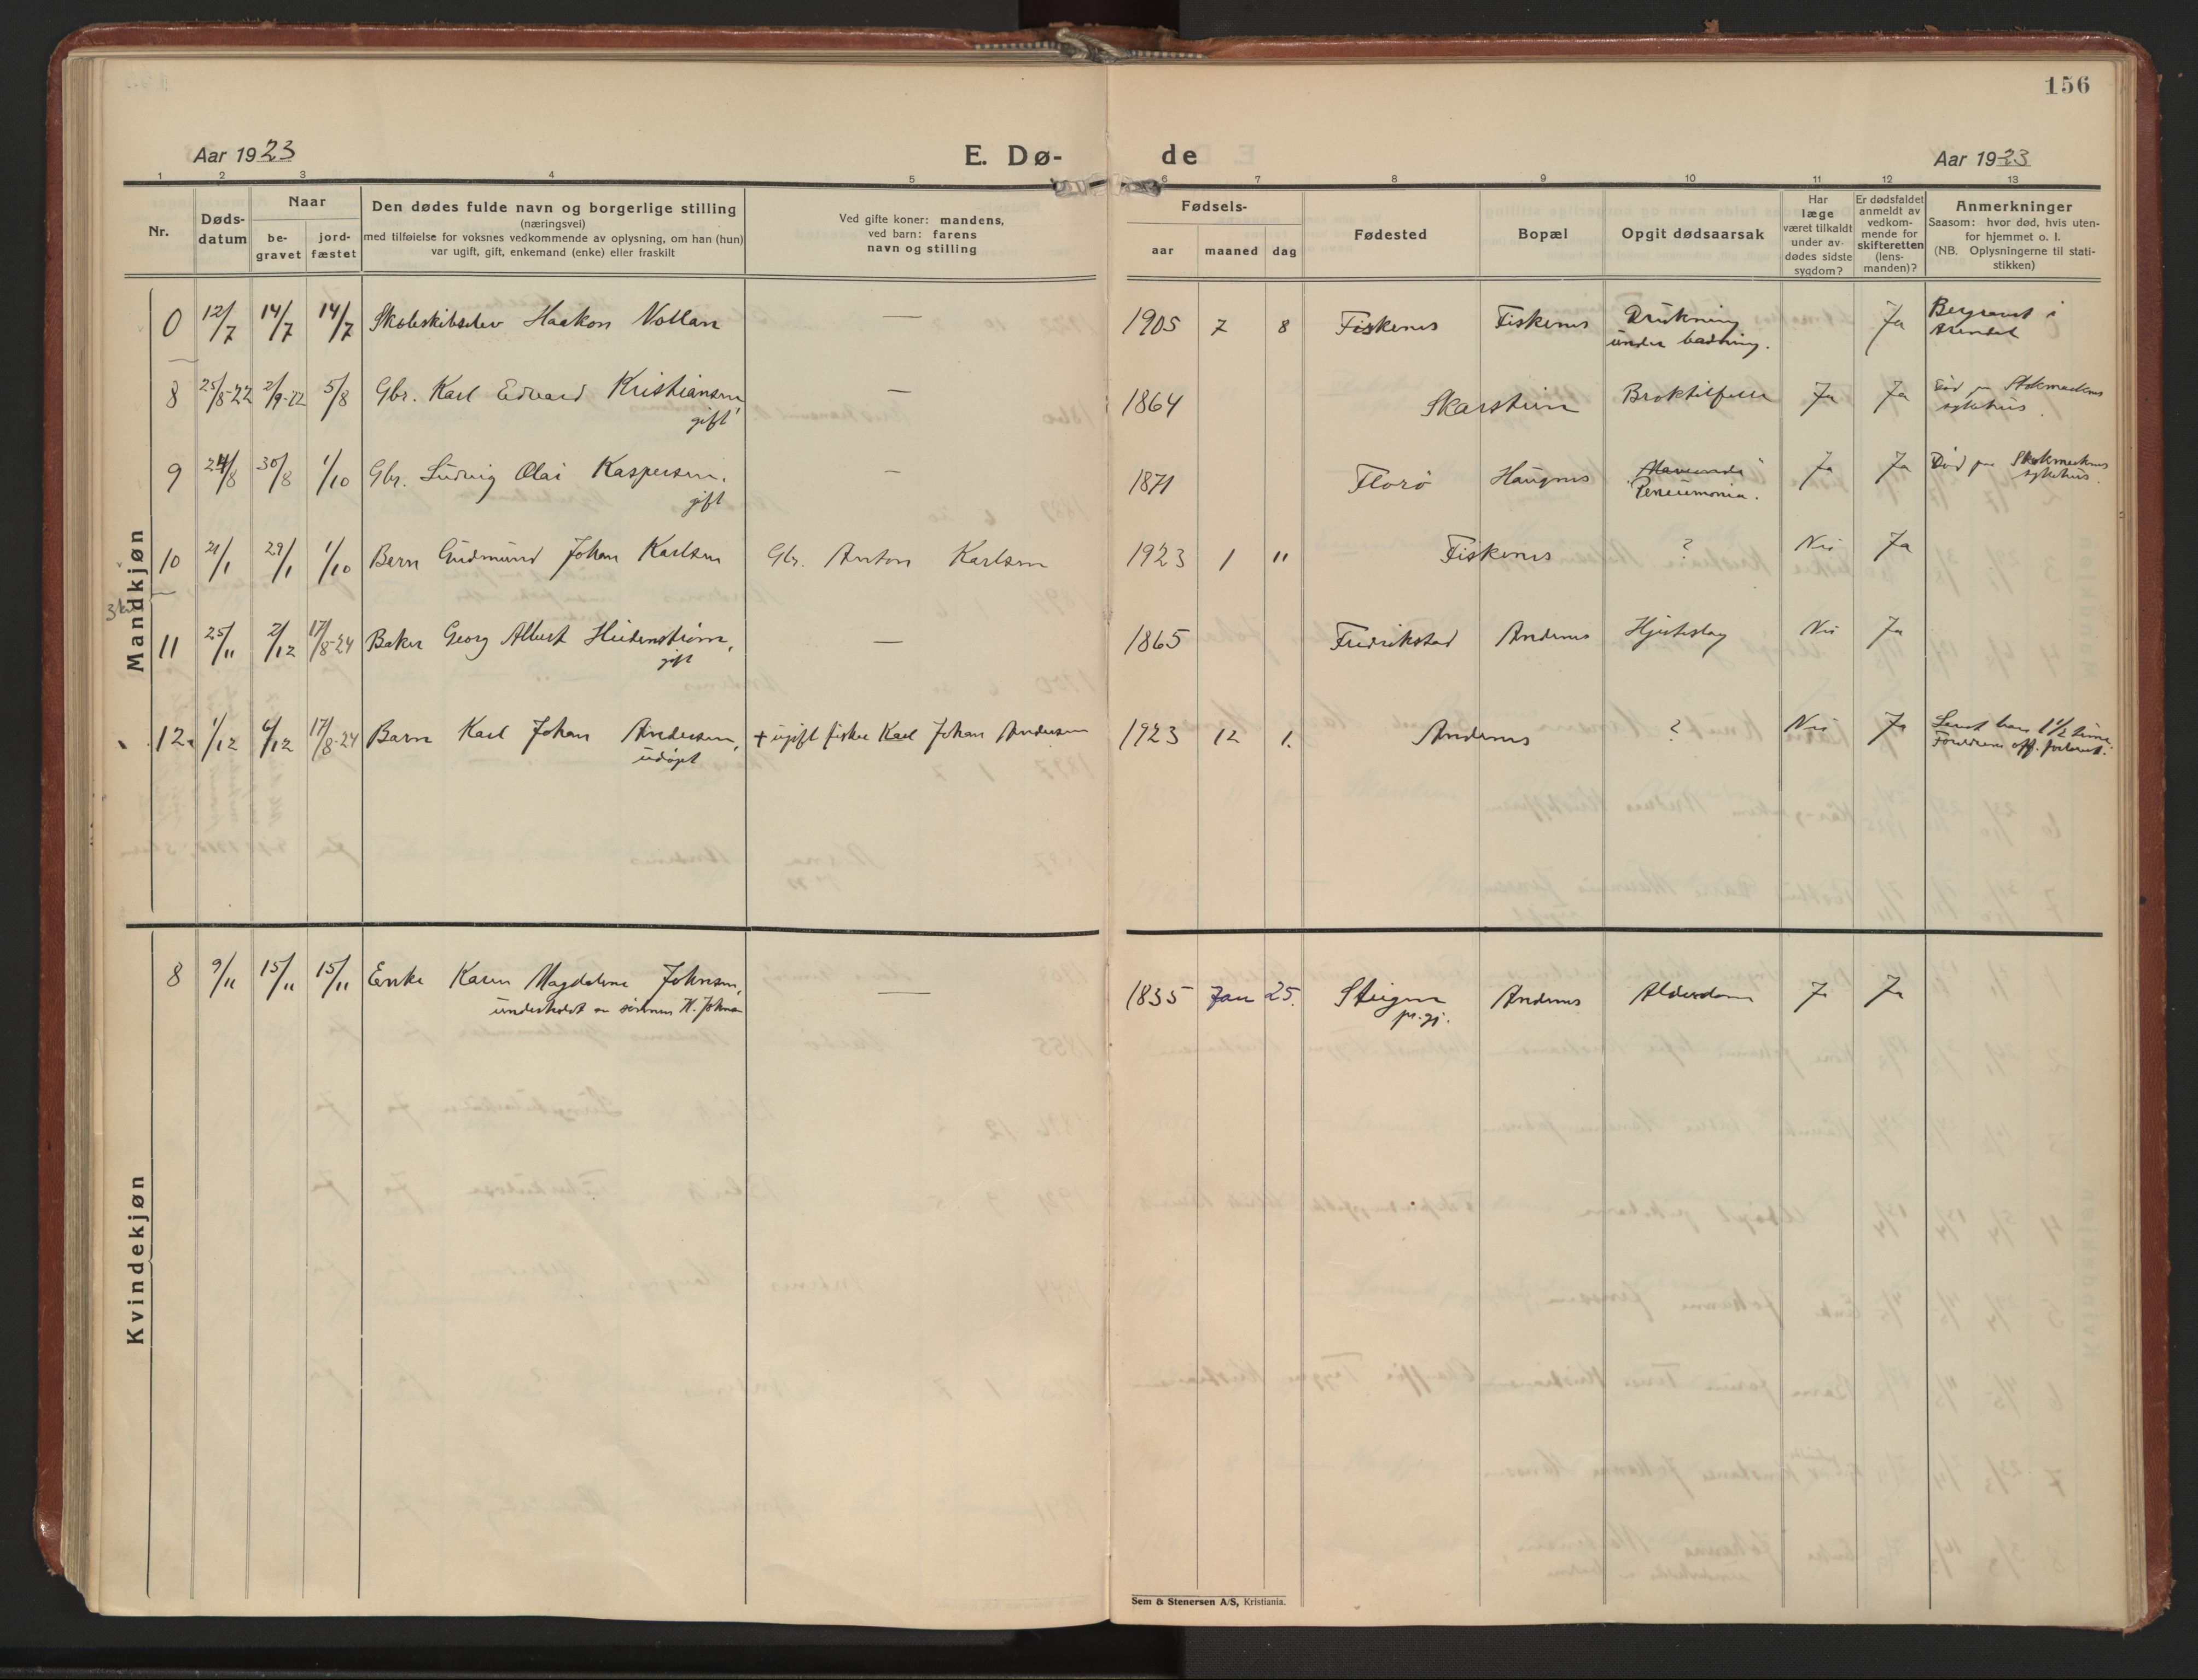 156
Aar 1923 E. Dø- de Aar 1923
1 2 3 4 5 6 7 8 9 10 11 12 13
Nr.
Døds-
datum
Naar
be-
gravet
jord-
fæstet
Den dødes fulde navn og borgerlige stilling
(næringsvei)
med tilføielse for voksnes vedkommende av oplysning, om han (hun)
var ugift, gift, enkemand (enke) eller fraskilt
Ved gifte koner: mandens,
ved barn: farens
navn og stilling
Fødsels-
aar maaned dag
Fødested
Bopæl
Opgit dødsaarsak
Har
læge
været tilkaldt
under av-
dødes sidste
sygdom?
Er dødsfaldet
anmeldt av
vedkom-
mende for
skifteretten
(lens-
manden)?
Anmerkninger
Saasom: hvor død, hvis uten-
for hjemmet o. l.
(NB. Oplysningerne til stati-
stikken)
Mandkjøn
0 12/7 14/7 14/7 Skoleskibselev Haakon Nollan — 1905 7 8 Fiskenes Fiskenes Drukning Ja Begravet i
under badning. Arendal
8 25/8-22 2/9-22 5/8 Gbr. Karl Edvard Kristiansen, — 1864 Skarstein Ja Ja Død paa Stokmarknes
gift sykehus.
9 24/8 30/8 1/10 Gbr. Ludvig Olai Kaspersen. — 1871 Florø Haugnes Ja Ja Død paa Stokmarknes
gift Pneumonia. sykehus.
10 21/1 29/1 1/10 Barn Gudmund Johan Karlsen Gbr. Anton Karlsen 1923 1 11 Fiskenes ? Nei Ja
11 25/11 2/12 17/8-24 Baker Georg Albert Heidenstrøm, — 1865 Fredrikstad Andenes Hjerteslag Nei Ja
gift
12. 1/12 6/12 17/8-24 Barn Karl Johan Andersen, + ugift fisker Karl Johan Andersen 1923 12 1. Andenes ? Nei Ja Levet bare 1 1/2 time.
udøpt Foreldrene off. forlovet.
Kvindekjøn
8 9/11 15/11 15/11 Enke Karen Magdalena Johnsen, — 1835 Jan 25. Steigen Andenes Alderdom Ja Ja
underholdt av sønnen H. Johnsen pr.gj.
Sem & Stenersen A/S, Kristiania.